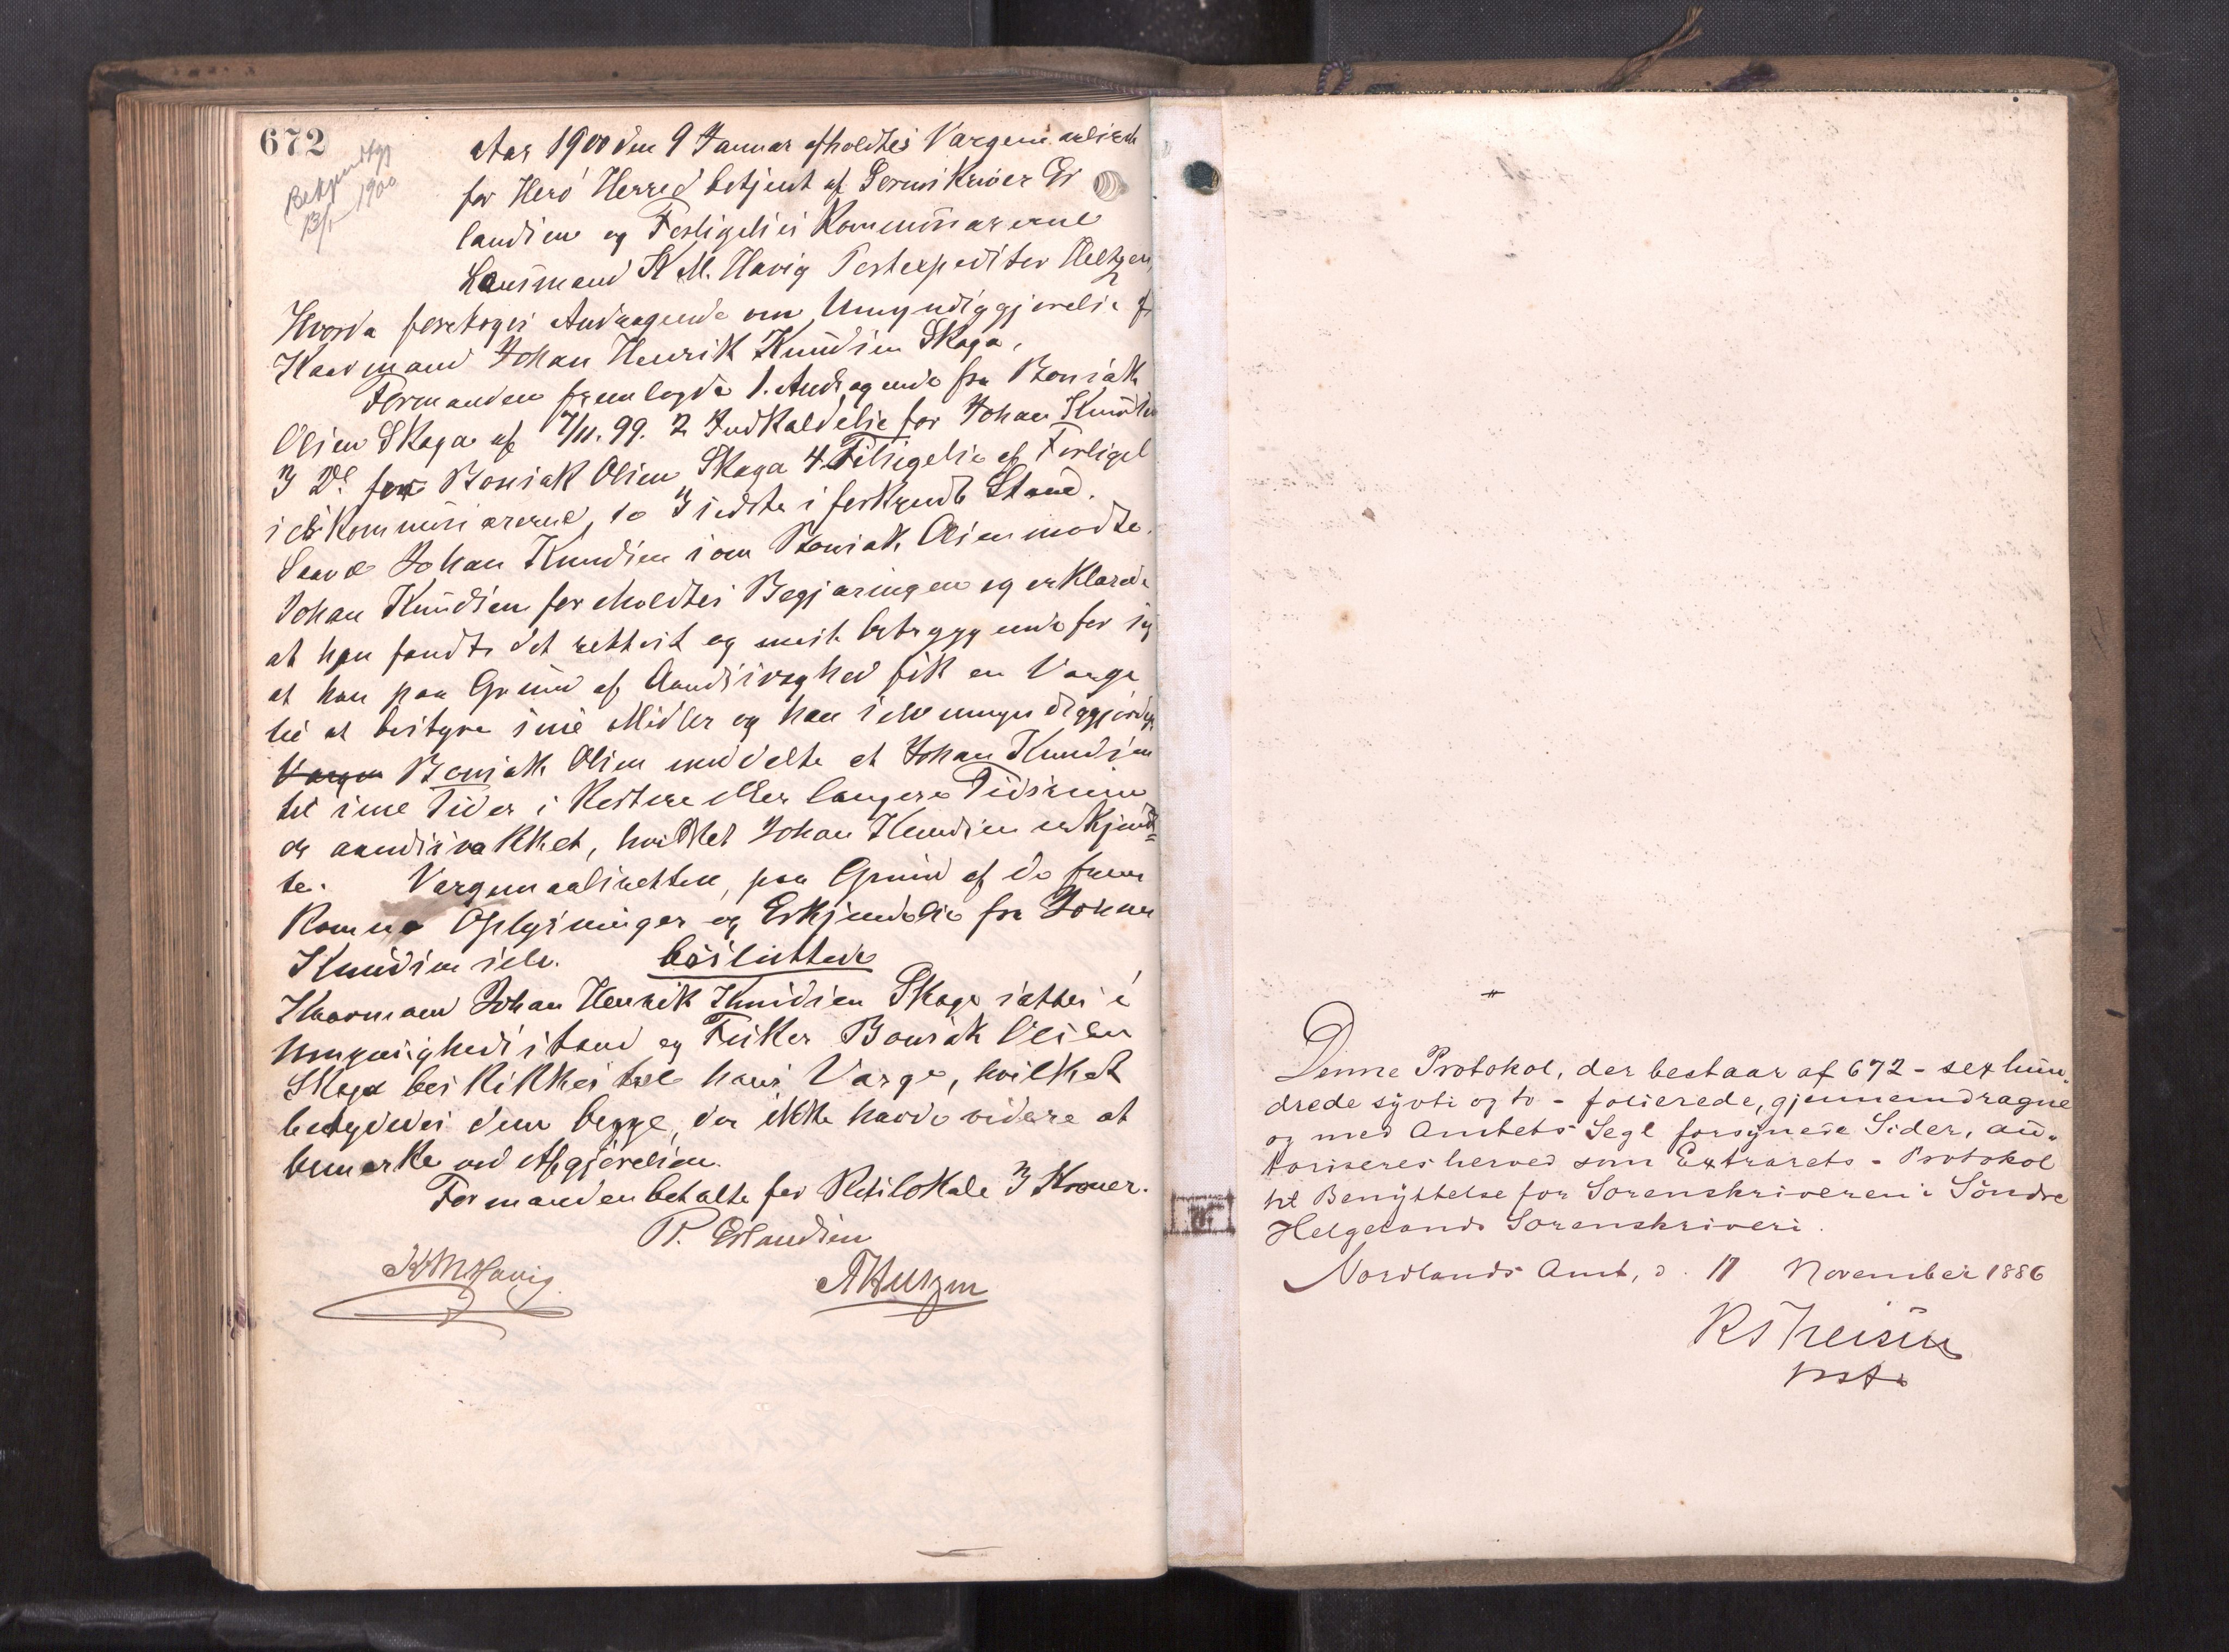 672
Bekjendtgj
13/1 1900
Aar 1900 den 9 Januar afholdtes Vergemaalsret
for Herø Herred betjent af Sorenskriver Er
landsen og Forligelseskommissærerne
Lensmand K M. Havig Postexpeditør Heltzen,
Hvorda foretoges Andragende om Umyndiggjørelse af
Kaarmand Johan Henrik Knudsen Skaga.
Formanden fremlagde 1. Andragende fra Bonsak
Olsen Skaga af 7/11. 99. 2 Indkaldelse for Johan Knudsen
3 Do for Bonsak Olsen Skaga 4. Tilsigelse af Forligel
seskommissærerne, to 3 sidste i forkyndt Stand.
Saavel Johan Knudsen som Bonsak Olsen mødte.
Johan Knudsen foreholdtes Begjæringen og erklærede
at han fandt det rettest og mest betryggende for sig
at han paa Grund af Aandssvaghed fik en Værge
til at bestyre sine Midler og han selv umyndiggjordes.
Værgen Bonsak Olsen meddelte at Johan Knudsen
til sine Tider i kortere eller længere Tidsrum
er aandssvækket, hvilket Johan Knudsen erkjend=
te. Vergemaalsretten, paa Grund af de frem
komne Oplysninger og Erkjendelse fra Johan
Knudsen selv. besluttede
Kaarmand Johan Henrik Knudsen Skaga sættes i
Umyndighedsstand og Fisker Bonsak Olsen
Skaga beskikkes til hans Værge, hvilket
betydedes dem begge, der ikke havde videre at
bemærke ved Afgjørelsen.
Formanden betalte for Retslokale 3 Kroner.
P. Erlandsen
K M Havig
A Heltzen
Denne Protokol, der bestaar af 672 - sex hun-
drede sytti og to - folierede, gjennemdragne
og med Amtets Segl forsynede Sider, au-
toriseres herved som Extrarets-Protokol
til Benyttelse for Sorenskriveren i Søndre
Helgelands Sorenskriveri.
Nordlands Amt, d. 17 November 1886